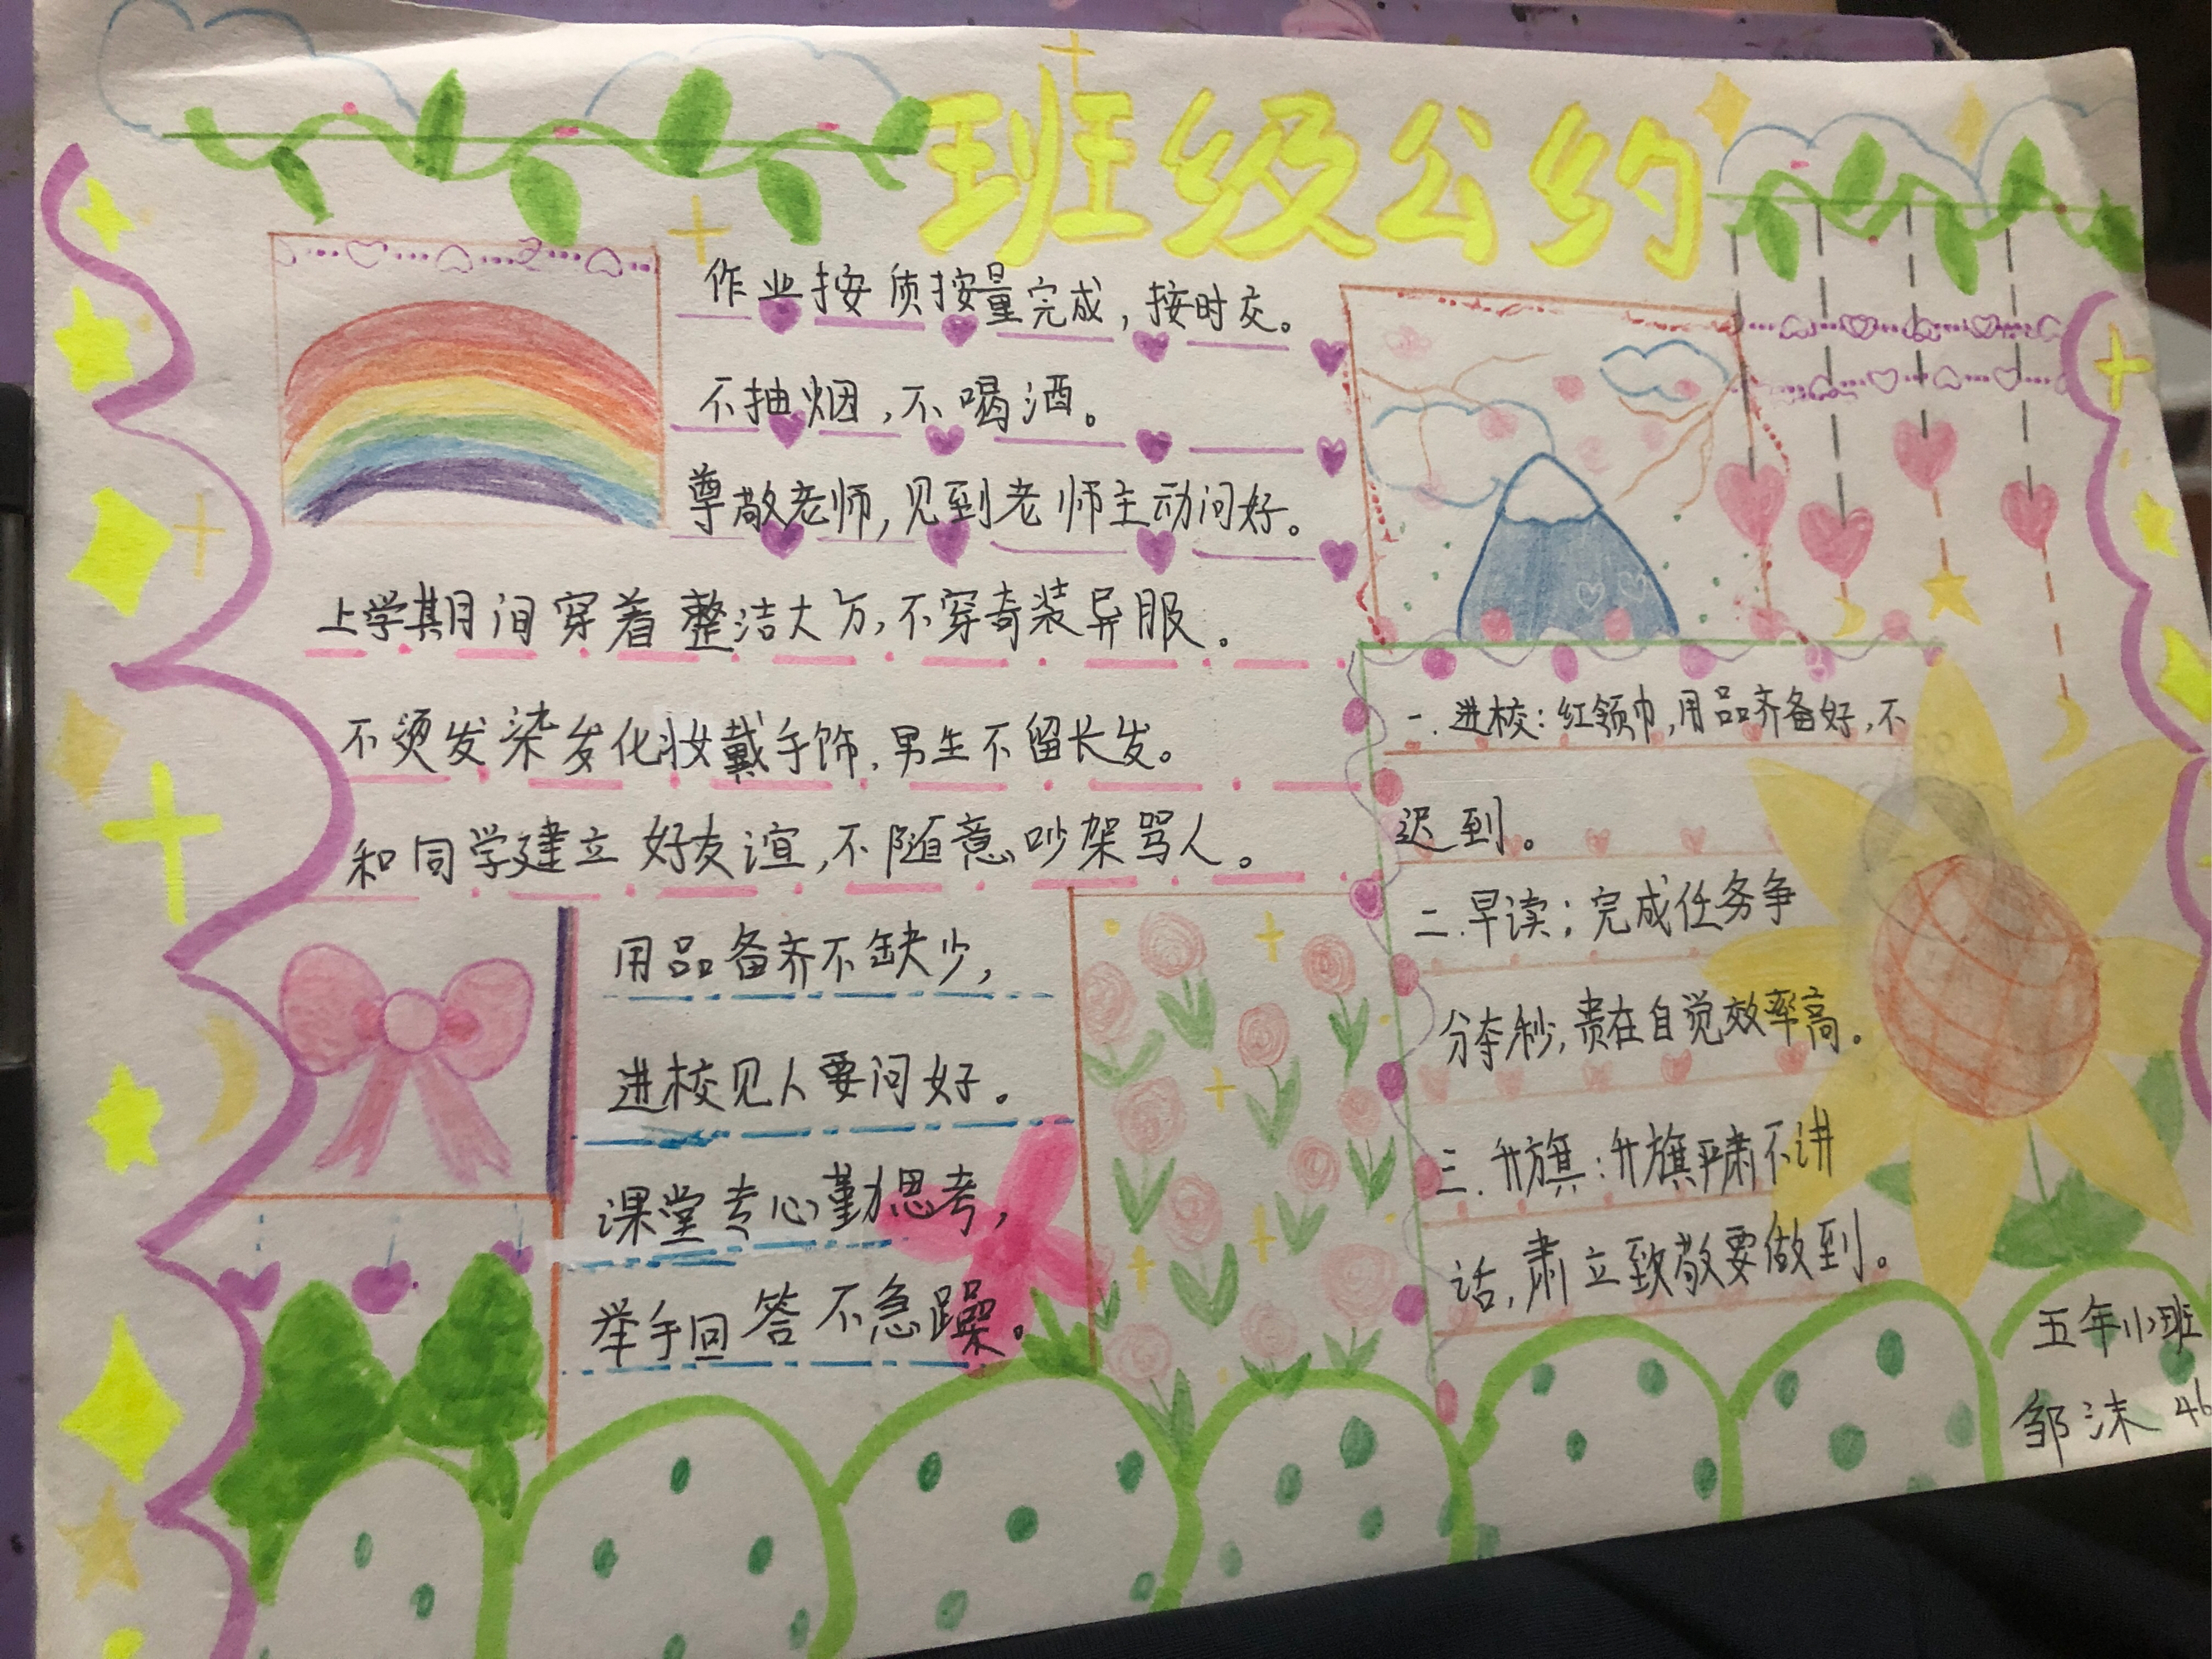 班级公约
作业按质按量完成，按时交。
不抽烟，不喝酒。
尊敬老师，见到老师主动问好。
上学期间穿着整洁大方，不穿奇装异服。
不烫发染发化妆戴手饰，男生不留长发。
和同学建立好友谊，不随意吵架骂人。
用品备齐不缺少，
进校见人要问好。
课堂专心勤思考，
举手回答不急躁。
一.进校：红领巾，用品齐备好，不
迟到。
二.早读：完成任务争
分夺秒，贵在自觉效率高。
三.升旗：升旗严肃不讲
话，肃立致敬要做到。
五年小班
邹沫 46